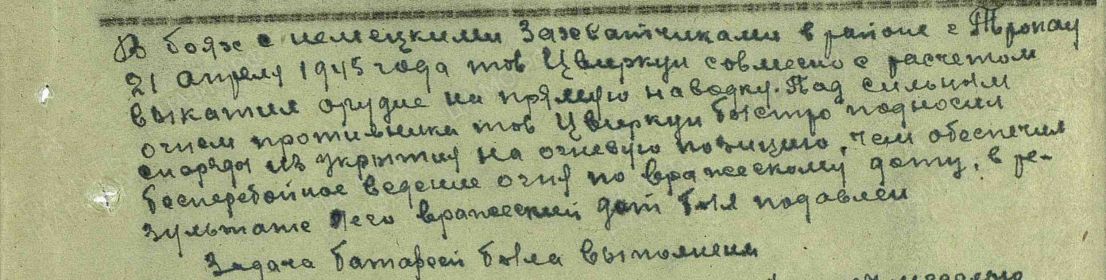 В боях с немецкими захватчиками в районе г Тропау
21 апреля 1945 года тов Цвиркун совмесно с расчетом
выкатил орудие на прямую наводку. Под сильным
огнем противника тов Цвиркун быстро подносил
снаряды из укрытия на огневую позицию, чем обеспечил
бесперебойное ведение огня по вражескому доту, в ре-
зультате чего вражеский дот был подавлен
Задача батареей была выполнена